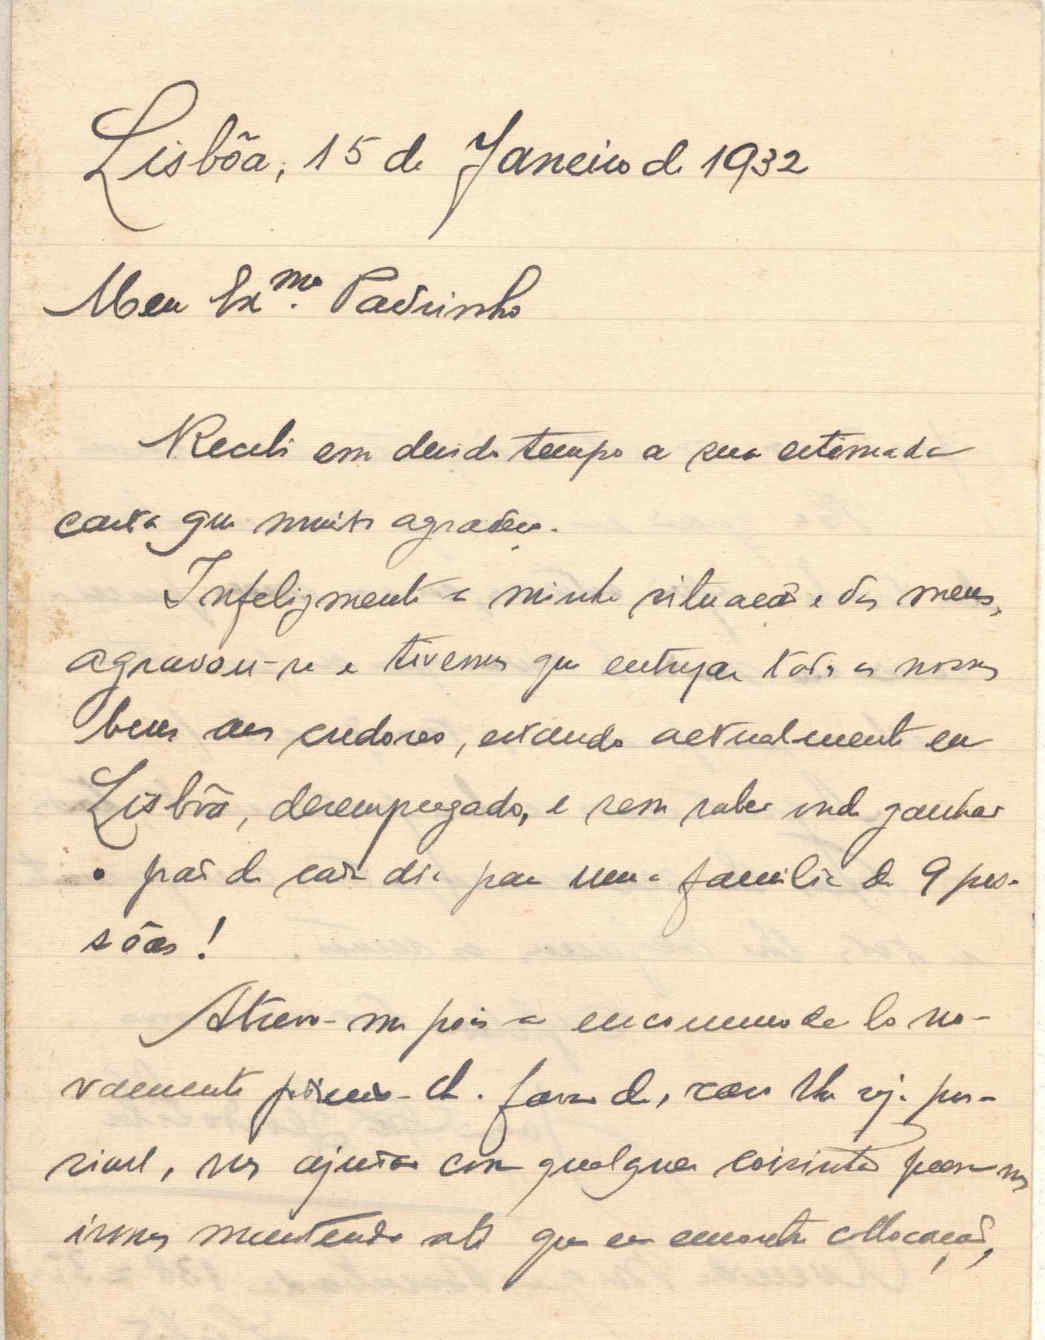 Lisbôa, 15 de Janeiro de 1932
Meu Exmo. Padrinho
Recebi em devido tempo a sua estimada
carta que muito agradeço.
Infelizmente a minha situação e dos meus,
agravou-se e tivemos que entregar todos os nossos
bens aos credores, estando actualmente em
Lisbôa, desempregado, e sem saber onde ganhar
o pão de cada dia para uma familia de 9 pes-
sôas!
Atrevo-me pois a encommodal-o no-
vamente pedindo-lh. favor de, caso lhe seja pos-
sivel, nos ajudar com qualquer coisinha para nos
irmos mantendo até que eu encontre collocação,